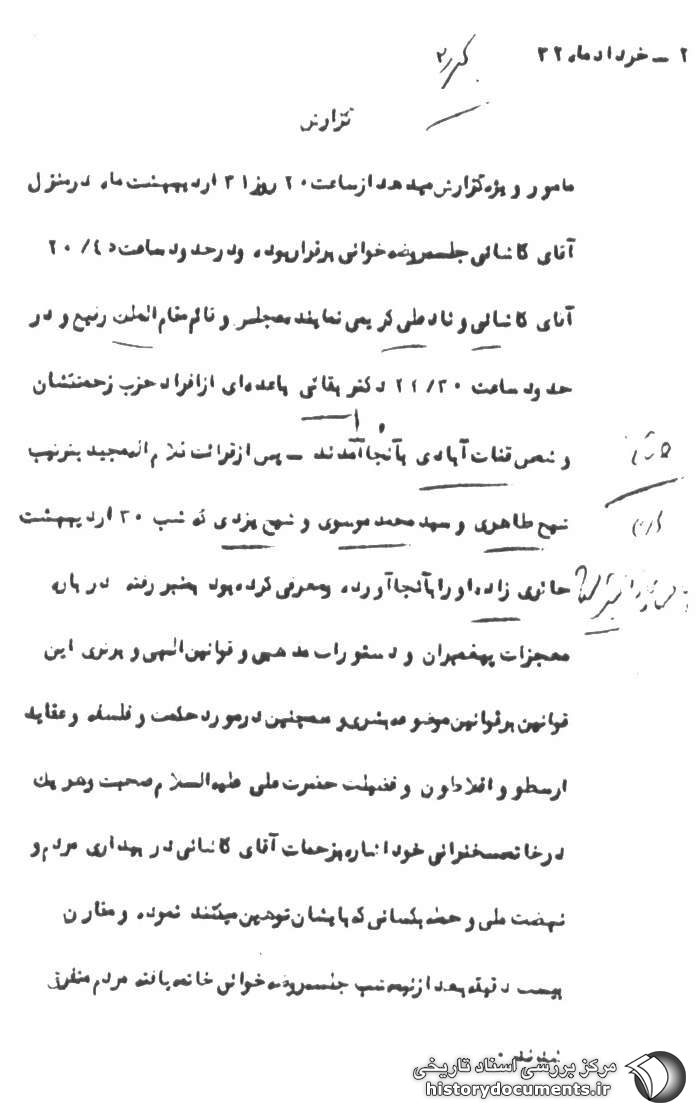 ۲ - خرداد ماه ۳۲
گزارش
مامور ویژه گزارش میدهد از ساعت ۲۰ روز ۳۱ اردیبهشت ماه در منزل
آقای کاشانی جلسه روضه خوانی برقرار بوده و در حدود ساعت ۲۰/۴۵
آقای کاشانی و نادعلی کریمی نماینده مجلس و قائم مقام الملک رفیع و در
حدود ساعت دکتر بقائی با عده‌ای از افراد حزب زحمتکشان
و شمس قنات آبادی بآنجا آمدند - پس از قرائت کلام المجید بترتیب
شیخ طاهری و سید محمد موسوی و شیخ یزدی که شب ۳۰ اردیبهشت
حائری زاده او را بآنجا آورده و معرفی کرده بود بمنبر رفته در باره
معجزات پیغمبران و دستورات مذهبی و قوانین الهی و برتری این
قوانین بر قوانین موضوعه بشری و همچنین در مورد حکمت و فلسفه و عقاید
ارسطو و افلاطون و فضیلت حضرت علی علیه السلام صحبت و هر یک
در خاتمه سخنرانی خود اشاره بزحمات آقای کاشانی در بیداری مردم و
نهضت ملی و حمله بکسانی که بایشان توهین میکنند نموده و مقارن
بیست دقیقه بعد از نیمه شب جلسه روضه خوانی خاتمه یافته مردم متفرق
شدند.
مرکز بررسی اسناد تاریخی
historydocuments.ir